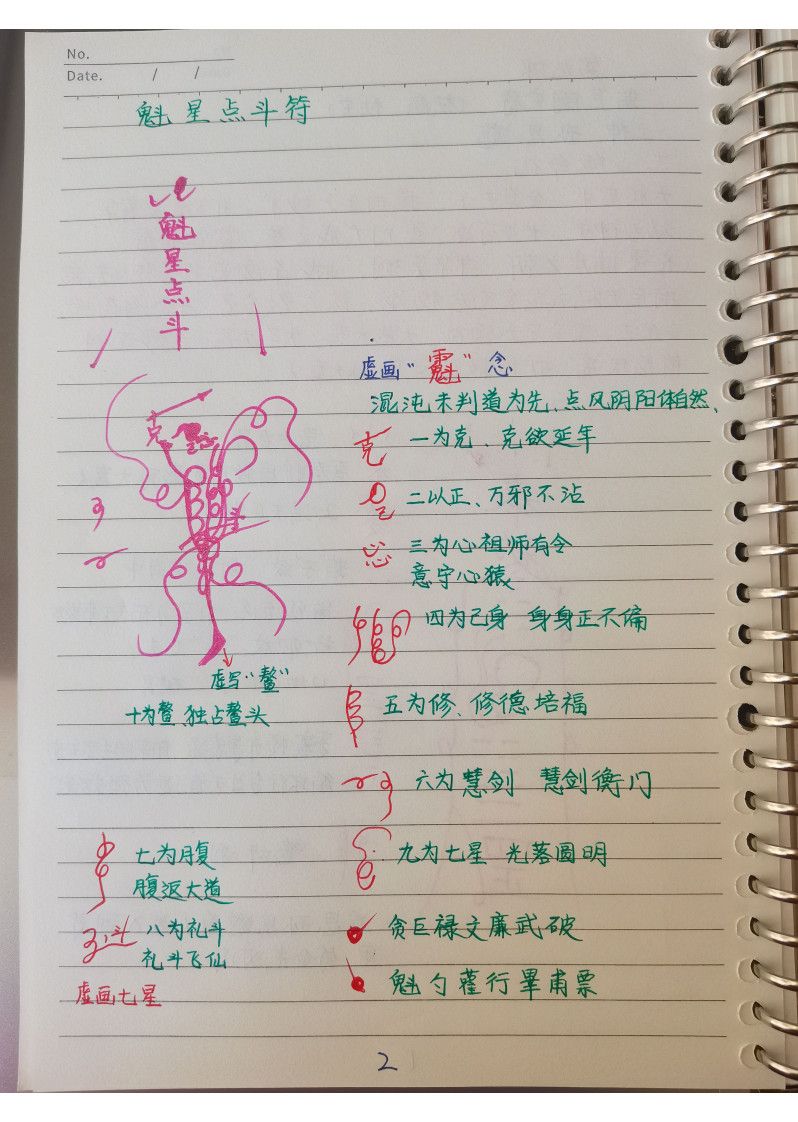 No.
Date. / /
魁星点斗符
魁
星
点
斗
虚画“魁”念
混沌未判道为先、点风阴阳体自然、
克
克 一为克、克欲延年
二以正、万邪不沾
三为心祖师有令
意守心猿
四为己身 身身正不偏
虚写“鳌”
十为鳌、独占鳌头
五为修、修德培福
六为慧剑 慧剑衡门
七为腹
腹返大道
九为七星 光芒圆明
斗 八为礼斗
礼斗飞仙
贪巨禄文廉武破
虚画七星
魁勺雚行畢甫票
2